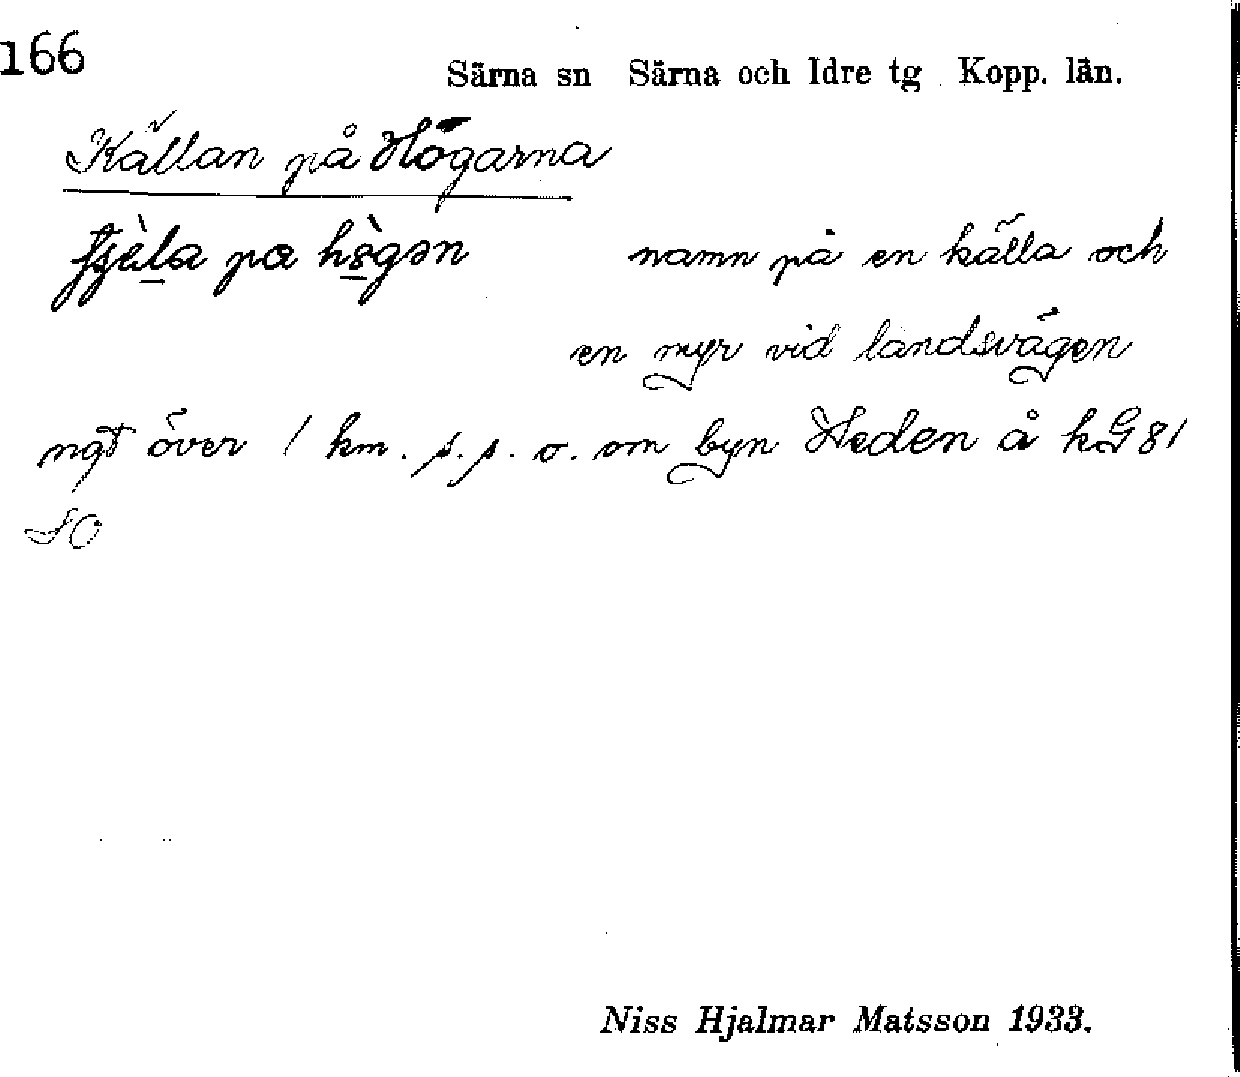 166
Särna sn Särna och Idre tg Kopp. län.
Källan på Högarna
pa namn på en källa och
en myr vid landsvägen
ngt över 1 km. s.s.o. om byn Heden å kG81
SO
Niss Hjalmar Matsson 1933.